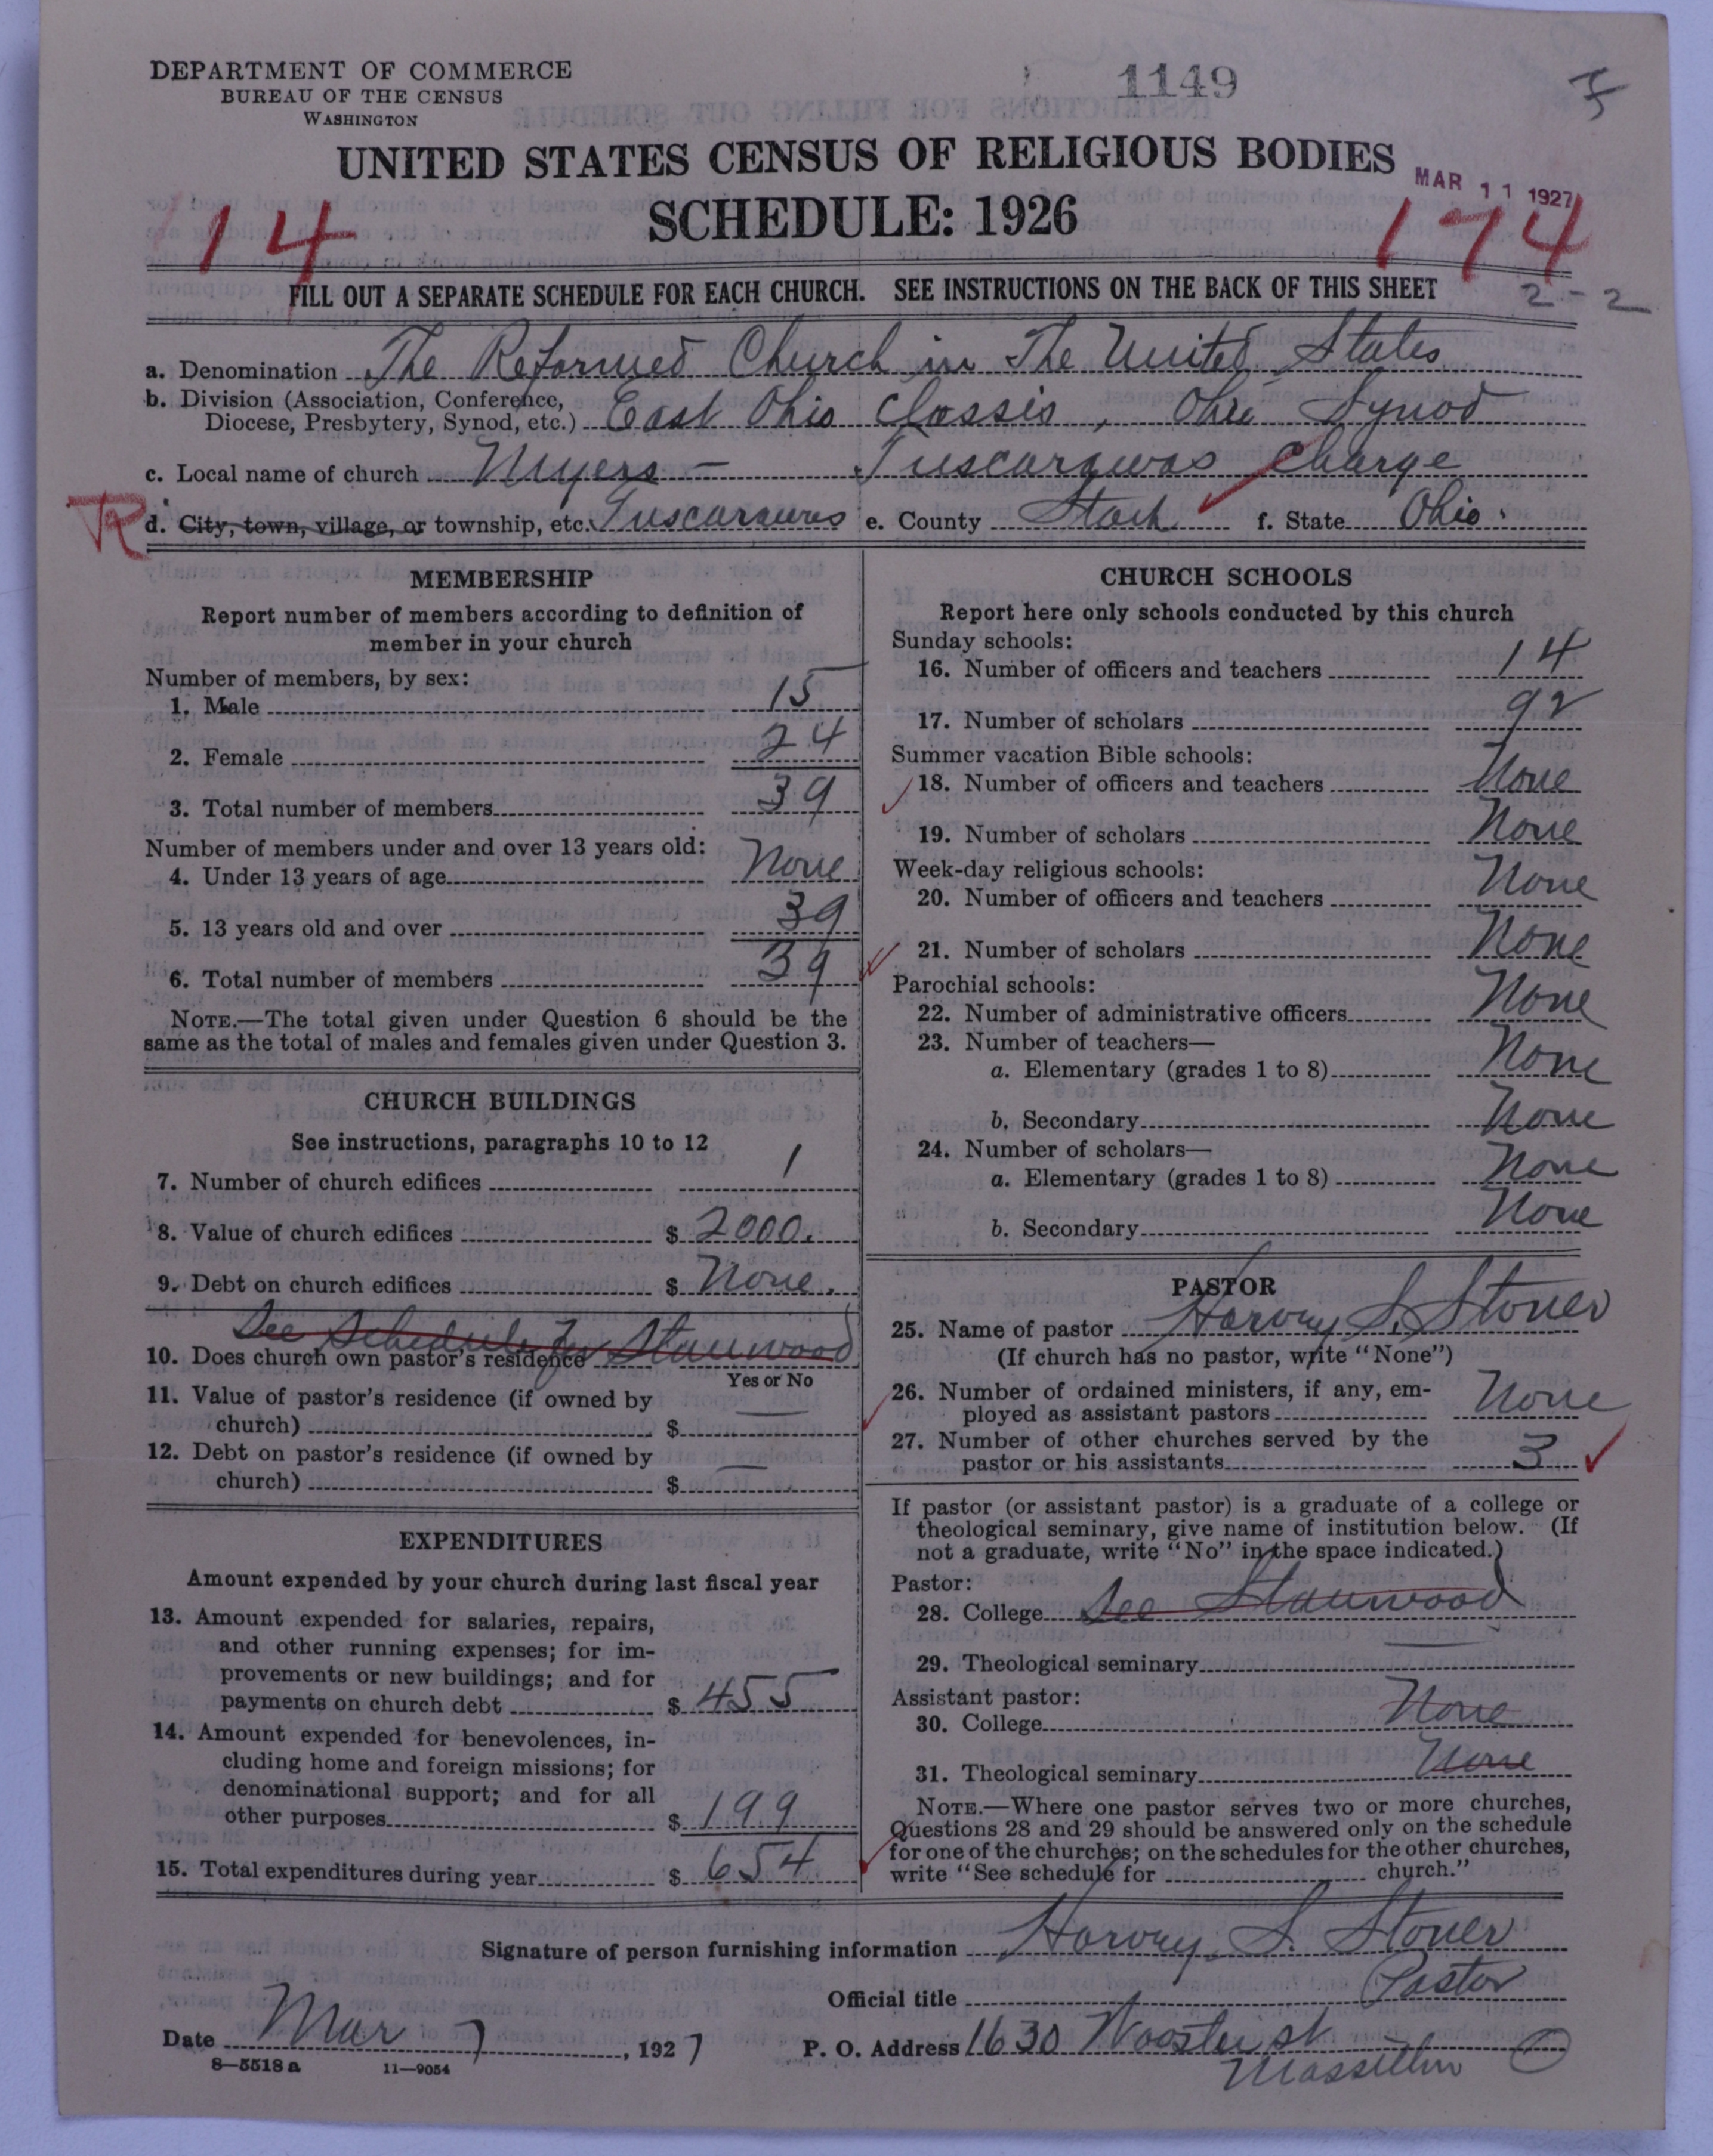 DEPARTMENT OF COMMERCE
BUREAU OF THE CENSUS
WASHINGTON
1149
UNITED STATES CENSUS OF RELIGIOUS BODIES
MAR 11 1927
SCHEDULE: 1926
14
174
FILL OUT A SEPARATE SCHEDULE FOR EACH CHURCH. SEE INSTRUCTIONS ON THE BACK OF THIS SHEET
2-2
a. Denomination The Reformed Church in The United States
b. Division (Association, Conference,
Diocese, Presbytery, Synod, etc.) East Ohio Classis, Ohio Synod
c. Local name of church Myers - Tuscarawas Charge
d. City, town, village, or township, etc. Tuscarawas e. County Stark f. State Ohio.
MEMBERSHIP
Report number of members according to definition of
member in your church
Number of members, by sex:
1. Male 15
2. Female 24
3. Total number of members 39
Number of members under and over 13 years old:
4. Under 13 years of age None
5. 13 years old and over 39
6. Total number of members 39
NOTE.—The total given under Question 6 should be the
same as the total of males and females given under Question 3.
CHURCH BUILDINGS
See instructions, paragraphs 10 to 12
7. Number of church edifices 1
8. Value of church edifices $ 2000.
9. Debt on church edifices $ None.
See Schedule for Stanwood
10. Does church own pastor's residence
Yes or No
11. Value of pastor's residence (if owned by
church) $ —
12. Debt on pastor's residence (if owned by
church) $ —
EXPENDITURES
Amount expended by your church during last fiscal year
13. Amount expended for salaries, repairs,
and other running expenses; for im-
provements or new buildings; and for
payments on church debt $ 455
14. Amount expended for benevolences, in-
cluding home and foreign missions; for
denominational support; and for all
other purposes $ 199
15. Total expenditures during year $ 654
CHURCH SCHOOLS
Report here only schools conducted by this church
Sunday schools:
16. Number of officers and teachers 14
17. Number of scholars 92
Summer vacation Bible schools:
18. Number of officers and teachers None
19. Number of scholars None
Week-day religious schools:
20. Number of officers and teachers None
21. Number of scholars None
Parochial schools:
22. Number of administrative officers None
23. Number of teachers—
a. Elementary (grades 1 to 8) None
b. Secondary None
24. Number of scholars—
a. Elementary (grades 1 to 8) None
b. Secondary None
PASTOR
25. Name of pastor Harvey S. Stoner
(If church has no pastor, write "None")
26. Number of ordained ministers, if any, em-
ployed as assistant pastors None
27. Number of other churches served by the
pastor or his assistants 3
If pastor (or assistant pastor) is a graduate of a college or
theological seminary, give name of institution below. (If
not a graduate, write "No" in the space indicated.)
Pastor:
28. College See Stanwood
29. Theological seminary —
Assistant pastor:
30. College None
31. Theological seminary None
NOTE.—Where one pastor serves two or more churches,
Questions 28 and 29 should be answered only on the schedule
for one of the churches; on the schedules for the other churches,
write "See schedule for church."
Signature of person furnishing information Harvey S. Stoner
Official title Pastor
Date Mar 7, 1927 P. O. Address 1630 Wooster st
Massillon O
8—5518 a 11—9054